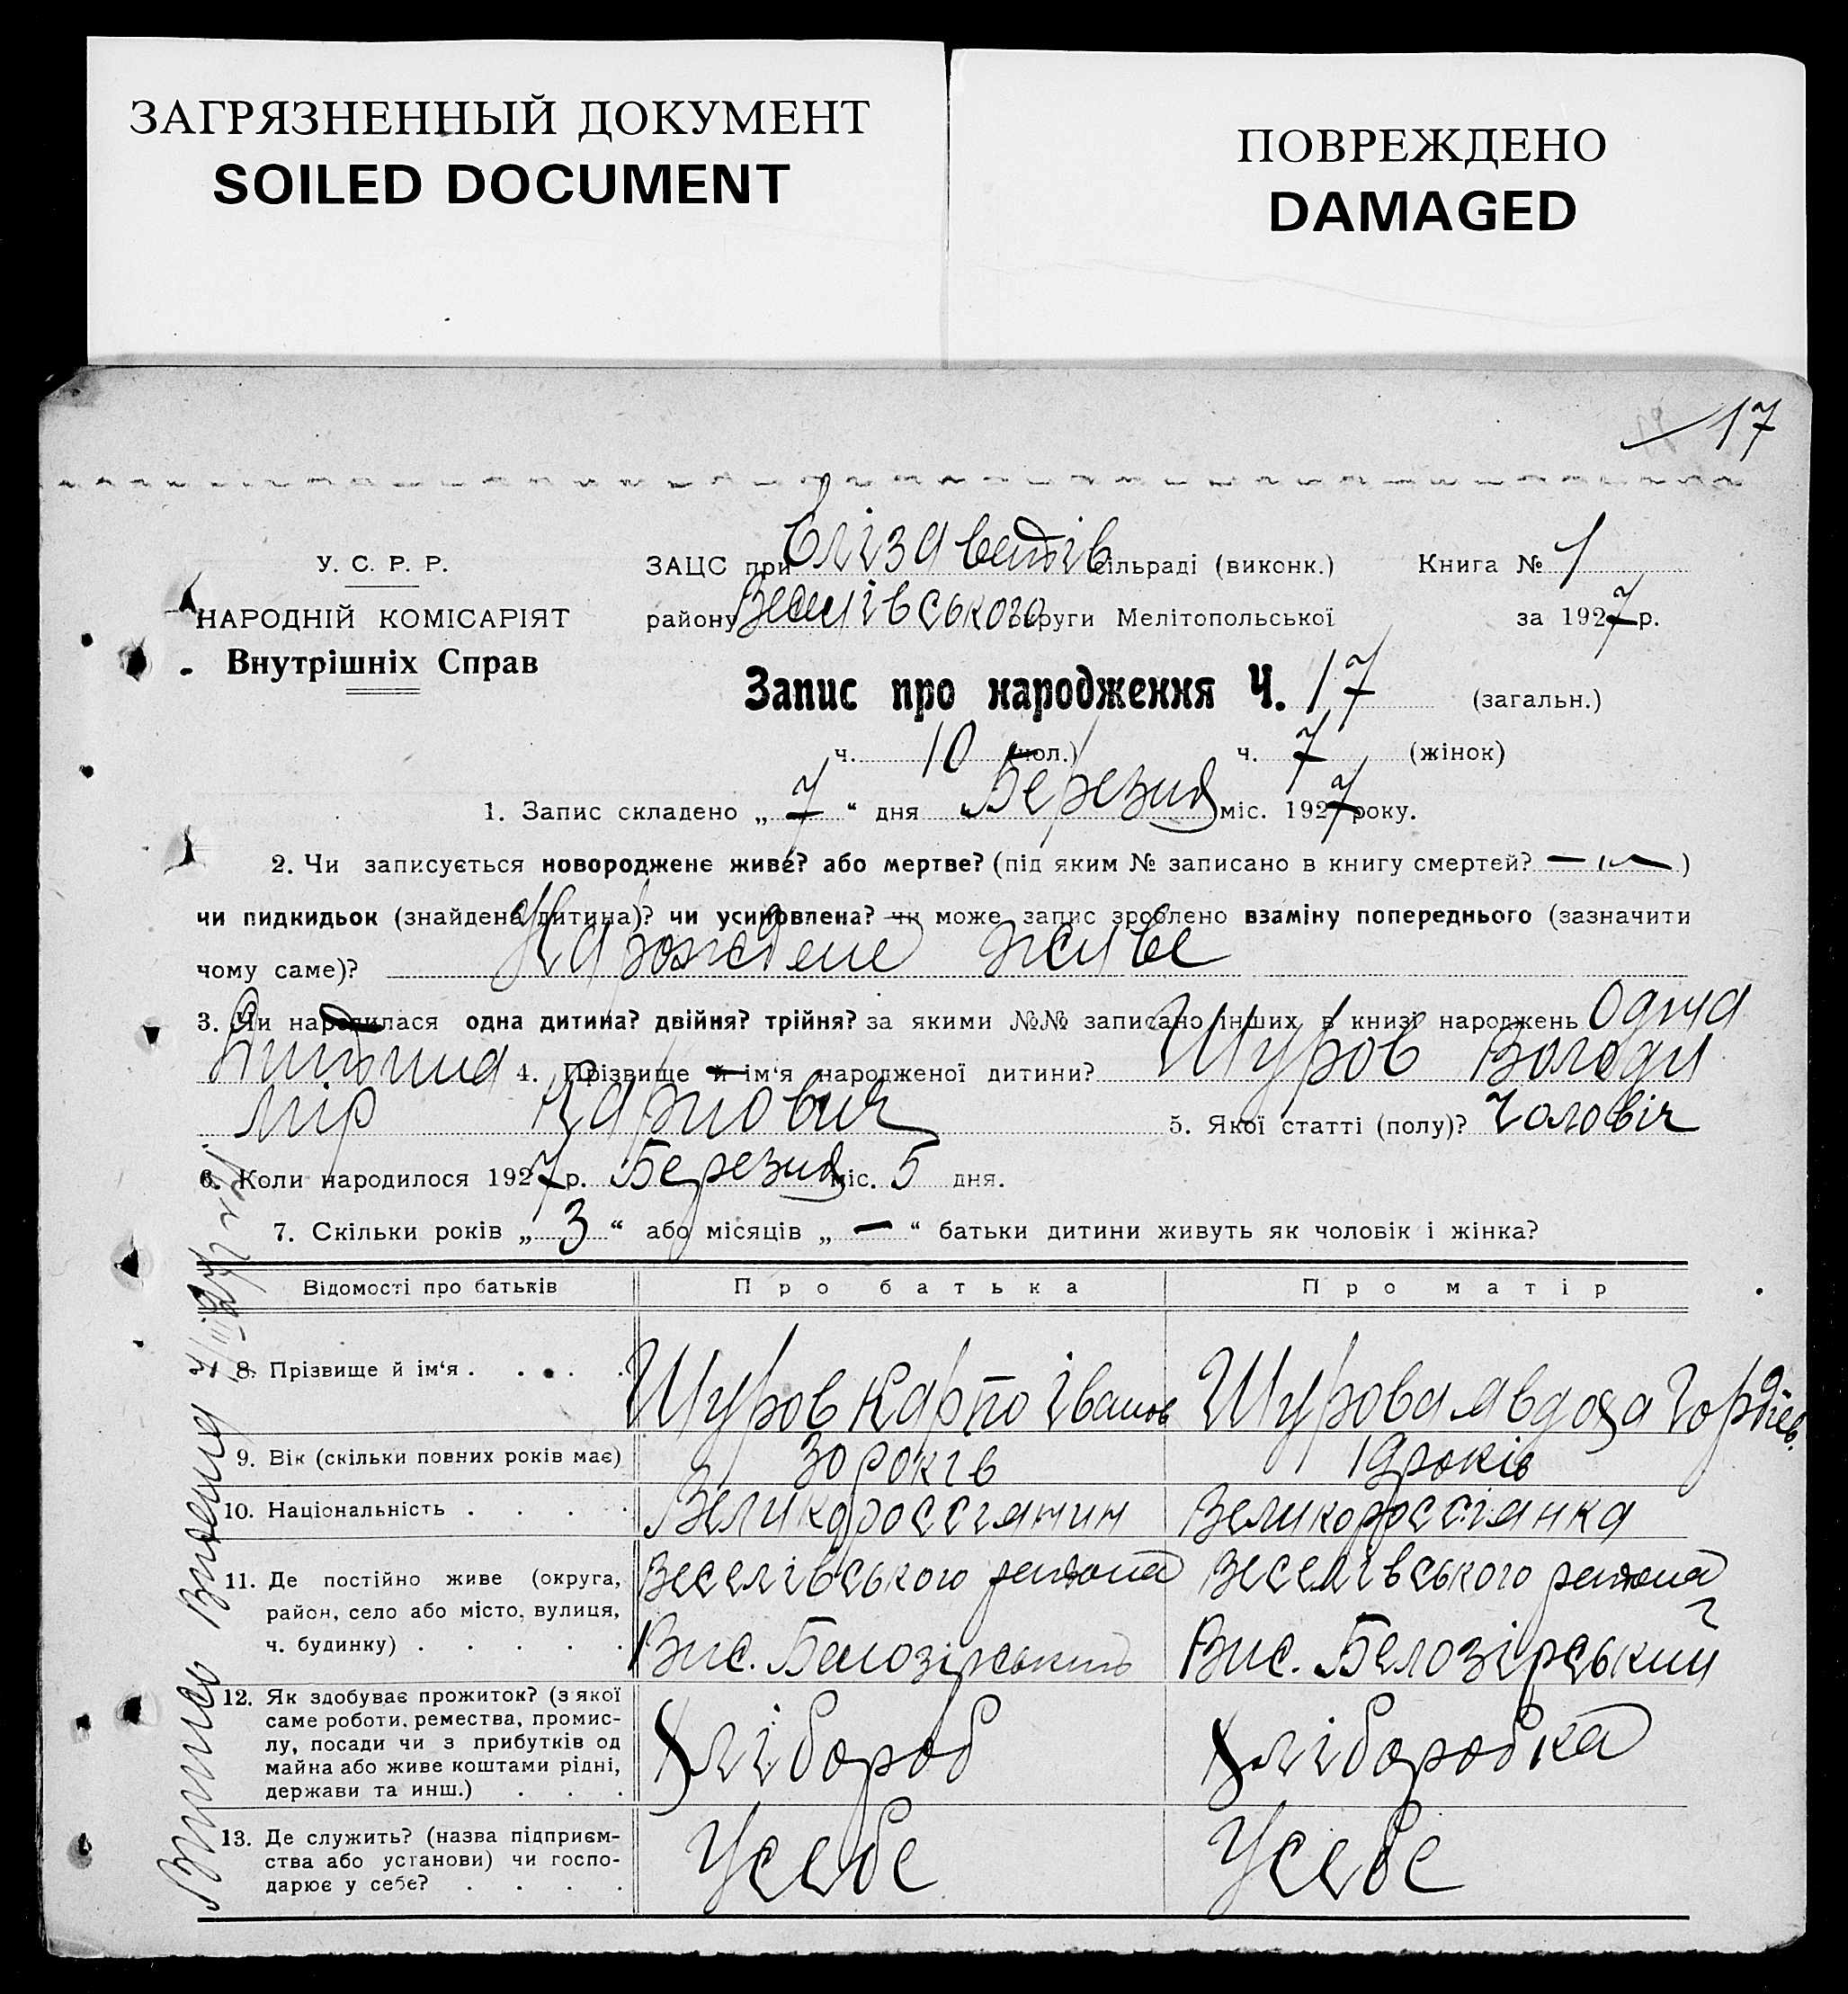 ЗАГРЯЗНЕННЫЙ ДОКУМЕНТ
SOILED DOCUMENT
ПОВРЕЖДЕНО
DAMAGED
17
У. С. Р. Р.
НАРОДНІЙ КОМІСАРІЯТ
Внутрішніх Справ
ЗАЦС при Єлізаветів сільраді (виконк.) Книга № 1
району Веселівського округи Мелітопольської за 1927 р.
Запис про народження Ч. 17 (загальн.)
ч. 10 (чол.) ч. 7 (жінок)
1. Запис складено „ 7 “ дня Березня міс. 1927 року.
2. Чи записується новороджене живе? або мертве? (під яким № записано в книгу смертей? — )
чи пидкидьок (знайдена дитина)? чи усиновлена? чи може запис зроблено взаміну попереднього (зазначити
чому саме)? Народжене живе
3. Чи народилася одна дитина? двійня? трійня? за якими №№ записано інших в книзі народжень Одна
Дитина 4. Прізвище й ім‘я народженої дитини? Шуров Володи
мір Карпович 5. Якої статті (полу)? Чоловіч
6. Коли народилося 1927 р. Березня міс. 5 дня.
7. Скільки років „ 3 “ або місяців „ — “ батьки дитини живуть як чоловік і жінка?
Відомості про батьків Про батька Про матір
8. Прізвище й ім‘я . . . . . Шуров Карпо Іванов Шурова Явдоха Гордіев.
9. Вік (скільки повних років має) 30 років 19 років
10. Національність . . . . Великороссіянин Великороссіянка
11. Де постійно живе (округа, Веселівського района Веселівського района
район, село або місто, вулиця,
ч. будинку) . . . . . Вис. Белозірський Вис. Белозірський
12. Як здобуває прожиток? (з якої
саме роботи, ремества, промис-
лу, посади чи з прибутків од Хлібороб Хліборобка
майна або живе коштами рідні,
держави та инш.) . . .
13. Де служить? (назва підприєм-
ства або установи) чи госпо- У себе У себе
дарює у себе? . . . .